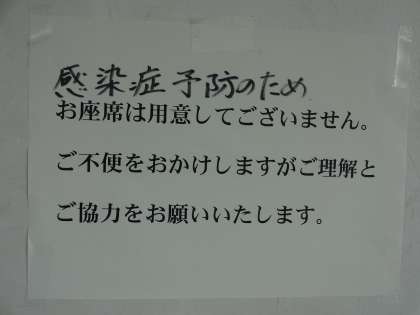 感染症予防のため
お座席は用意してございません。
ご不便をおかけしますがご理解と
ご協力をお願いいたします。